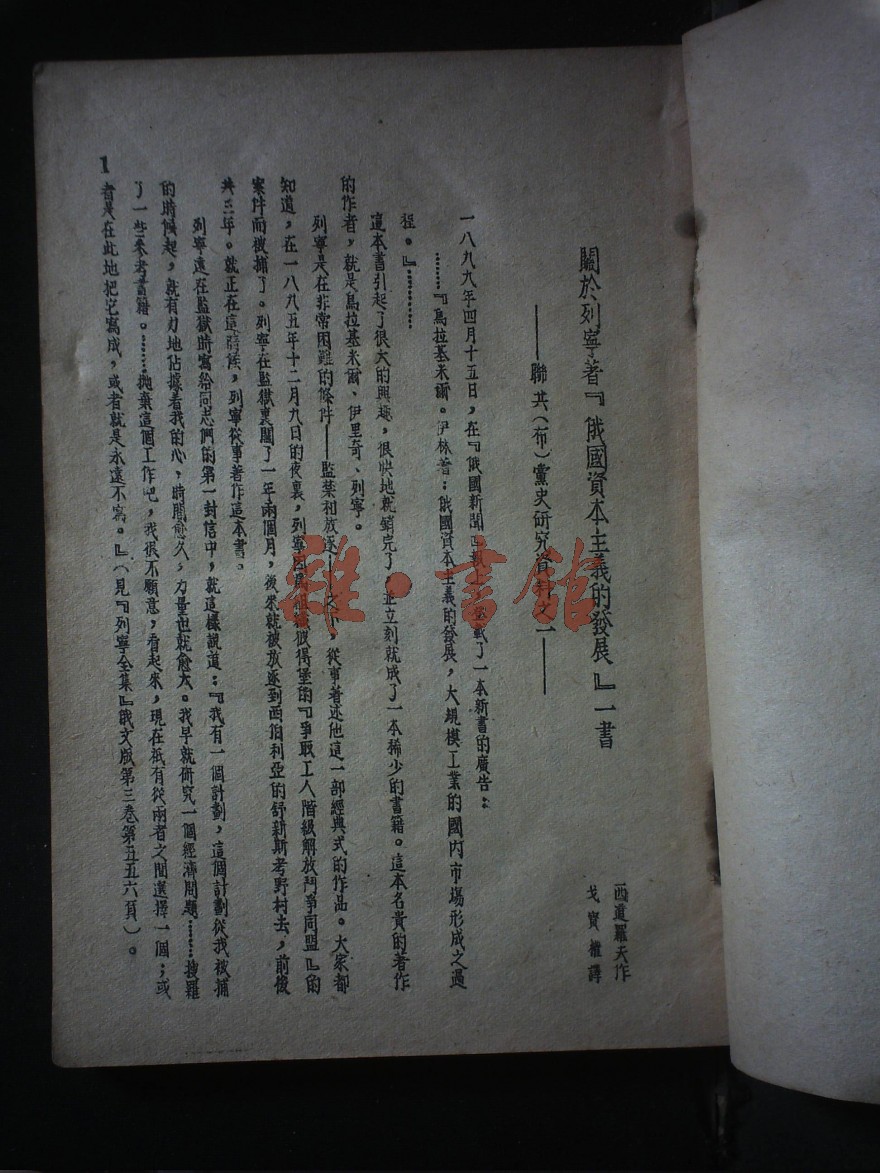 關於列寧著『俄國資本主義的發展』一書
——聯共(布)黨史研究資料之一——
西道羅夫作
戈寶權譯
一八九九年四月十五日,在『俄國新聞』報上登載了一本新書的廣告:
………『烏拉基米爾。伊林著:俄國資本主義的發展,大規模工業的國內市場形成之過
程。』…………
這本書引起了很大的興趣,很快地就銷完了,並立刻就成了一本稀少的書籍。這本名貴的著作
的作者,就是烏拉基米爾、伊里奇、列寧。
列寧是在非常困難的條件——監禁和放逐——之下,從事著述他這一部經典式的作品。大家都
知道,在一八八五年十二月九日的夜裏,列寧因爲組織彼得堡的『爭取工人階級解放鬥爭同盟』的
案件而被捕了。列寧在監獄裏關了一年兩個月,後來就被放逐到西伯利亞的舒新斯考野村去,前後
共三年。就正在這時候,列寧從事著作這本書。
列寧遠在監獄時寫給同志們的第一封信中,就這樣說道:『我有一個計劃,這個計劃從我被捕
的時候起,就有力地佔據着我的心,時間愈久,力量也就愈大。我早就研究一個經濟問題………搜羅
了一些參考書籍。………拋棄這個工作吧,我很不願意,看起來,現在祇有從兩者之間選擇一個;或
者是在此地把它寫成,或者就是永遠不寫。』(見『列寧全集』俄文版第三卷第五五六頁)。
1
雜·書館